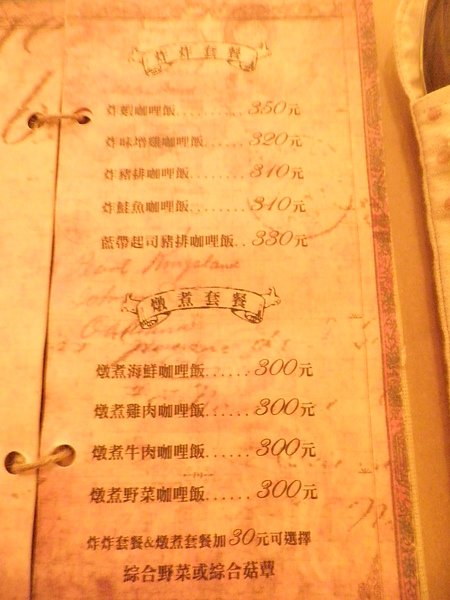 炸炸套餐
炸蝦咖哩飯........350元
炸味增雞咖哩飯......320元
炸豬排咖哩飯.......310元
炸鮭魚咖哩飯.......310元
藍帶起司豬排咖哩飯..330元
燉煮套餐
燉煮海鮮咖哩飯......300元
燉煮雞肉咖哩飯......300元
燉煮牛肉咖哩飯......300元
燉煮野菜咖哩飯......300元
炸炸套餐&燉煮套餐加30元可選擇
綜合野菜或綜合菇蕈